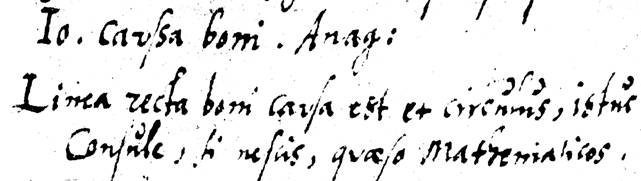 Io. Caussa boni. Anag:
Linea recta boni causa est et circulus, istuc
Consule, si nescis, quæso Mathematicos.